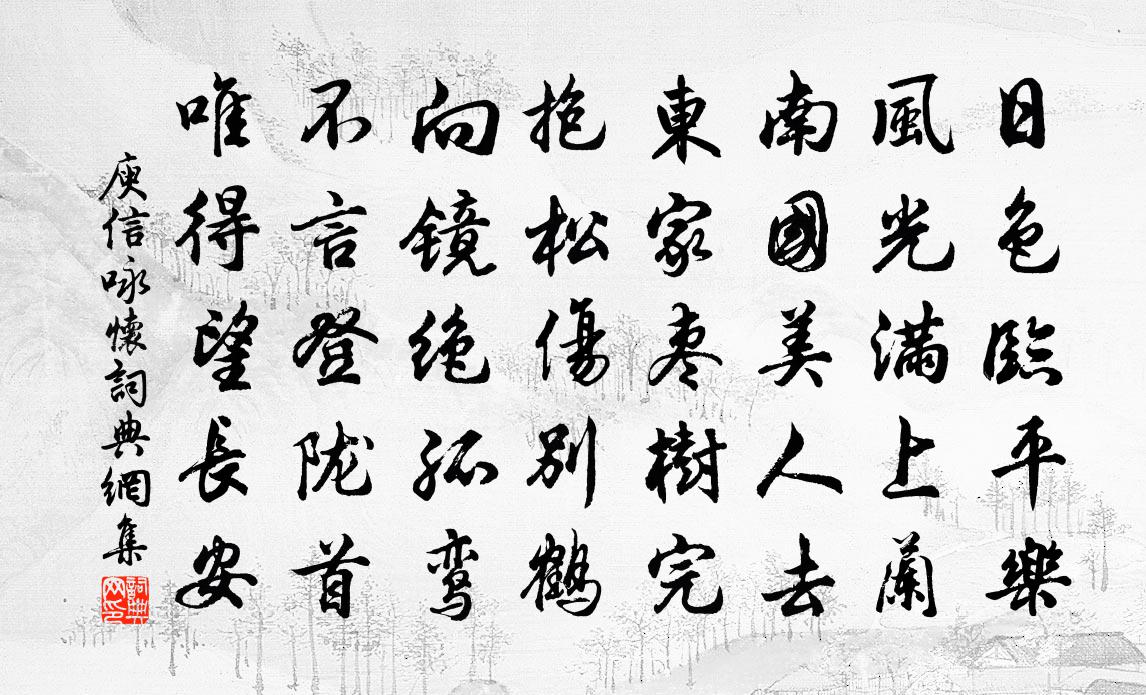 日色臨平樂
風光滿上蘭
南國美人去
東家枣樹完
抱松傷別鶴
向鏡绝孤鸾
不言登陇首
唯得望長安
庾信咏懷詞典網集
詞典网印